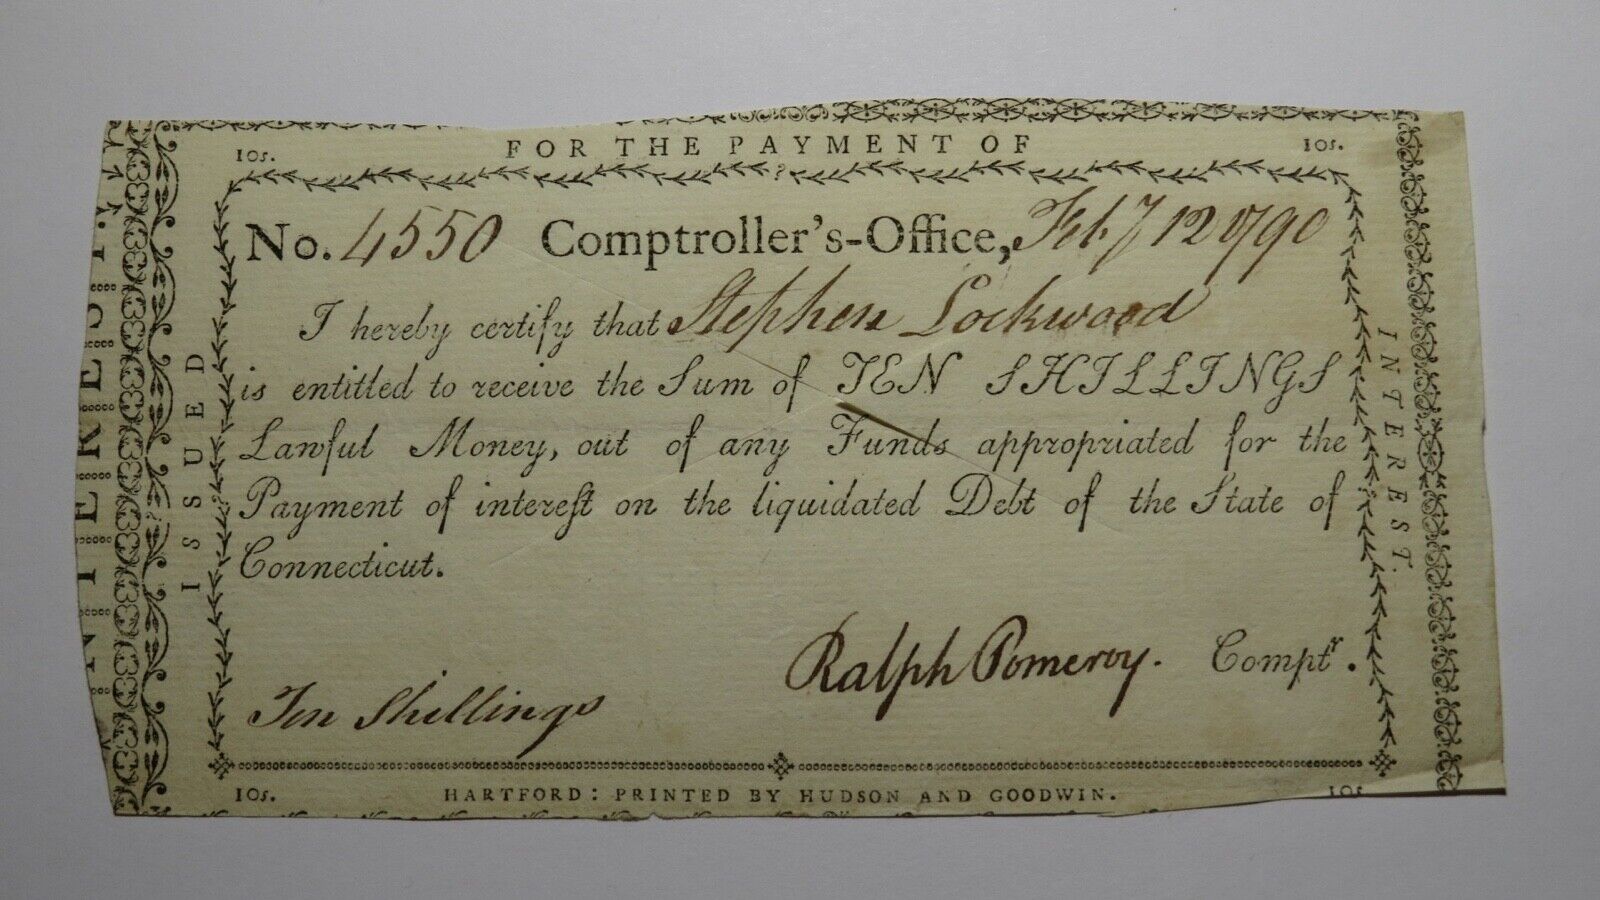 FOR THE PAYMENT OF
10s. 10s.
No. 4550 Comptroller's-Office, Feb. 12 1790
I hereby certify that Stephen Lockwood
is entitled to receive the Sum of TEN SHILLINGS
Lawful Money, out of any Funds appropriated for the
Payment of interest on the liquidated Debt of the State of
Connecticut.
Ralph Pomeroy. Comptr.
Ten Shillings
10s. HARTFORD: PRINTED BY HUDSON AND GOODWIN. 10s
ISSUED
INTEREST.
INTEREST